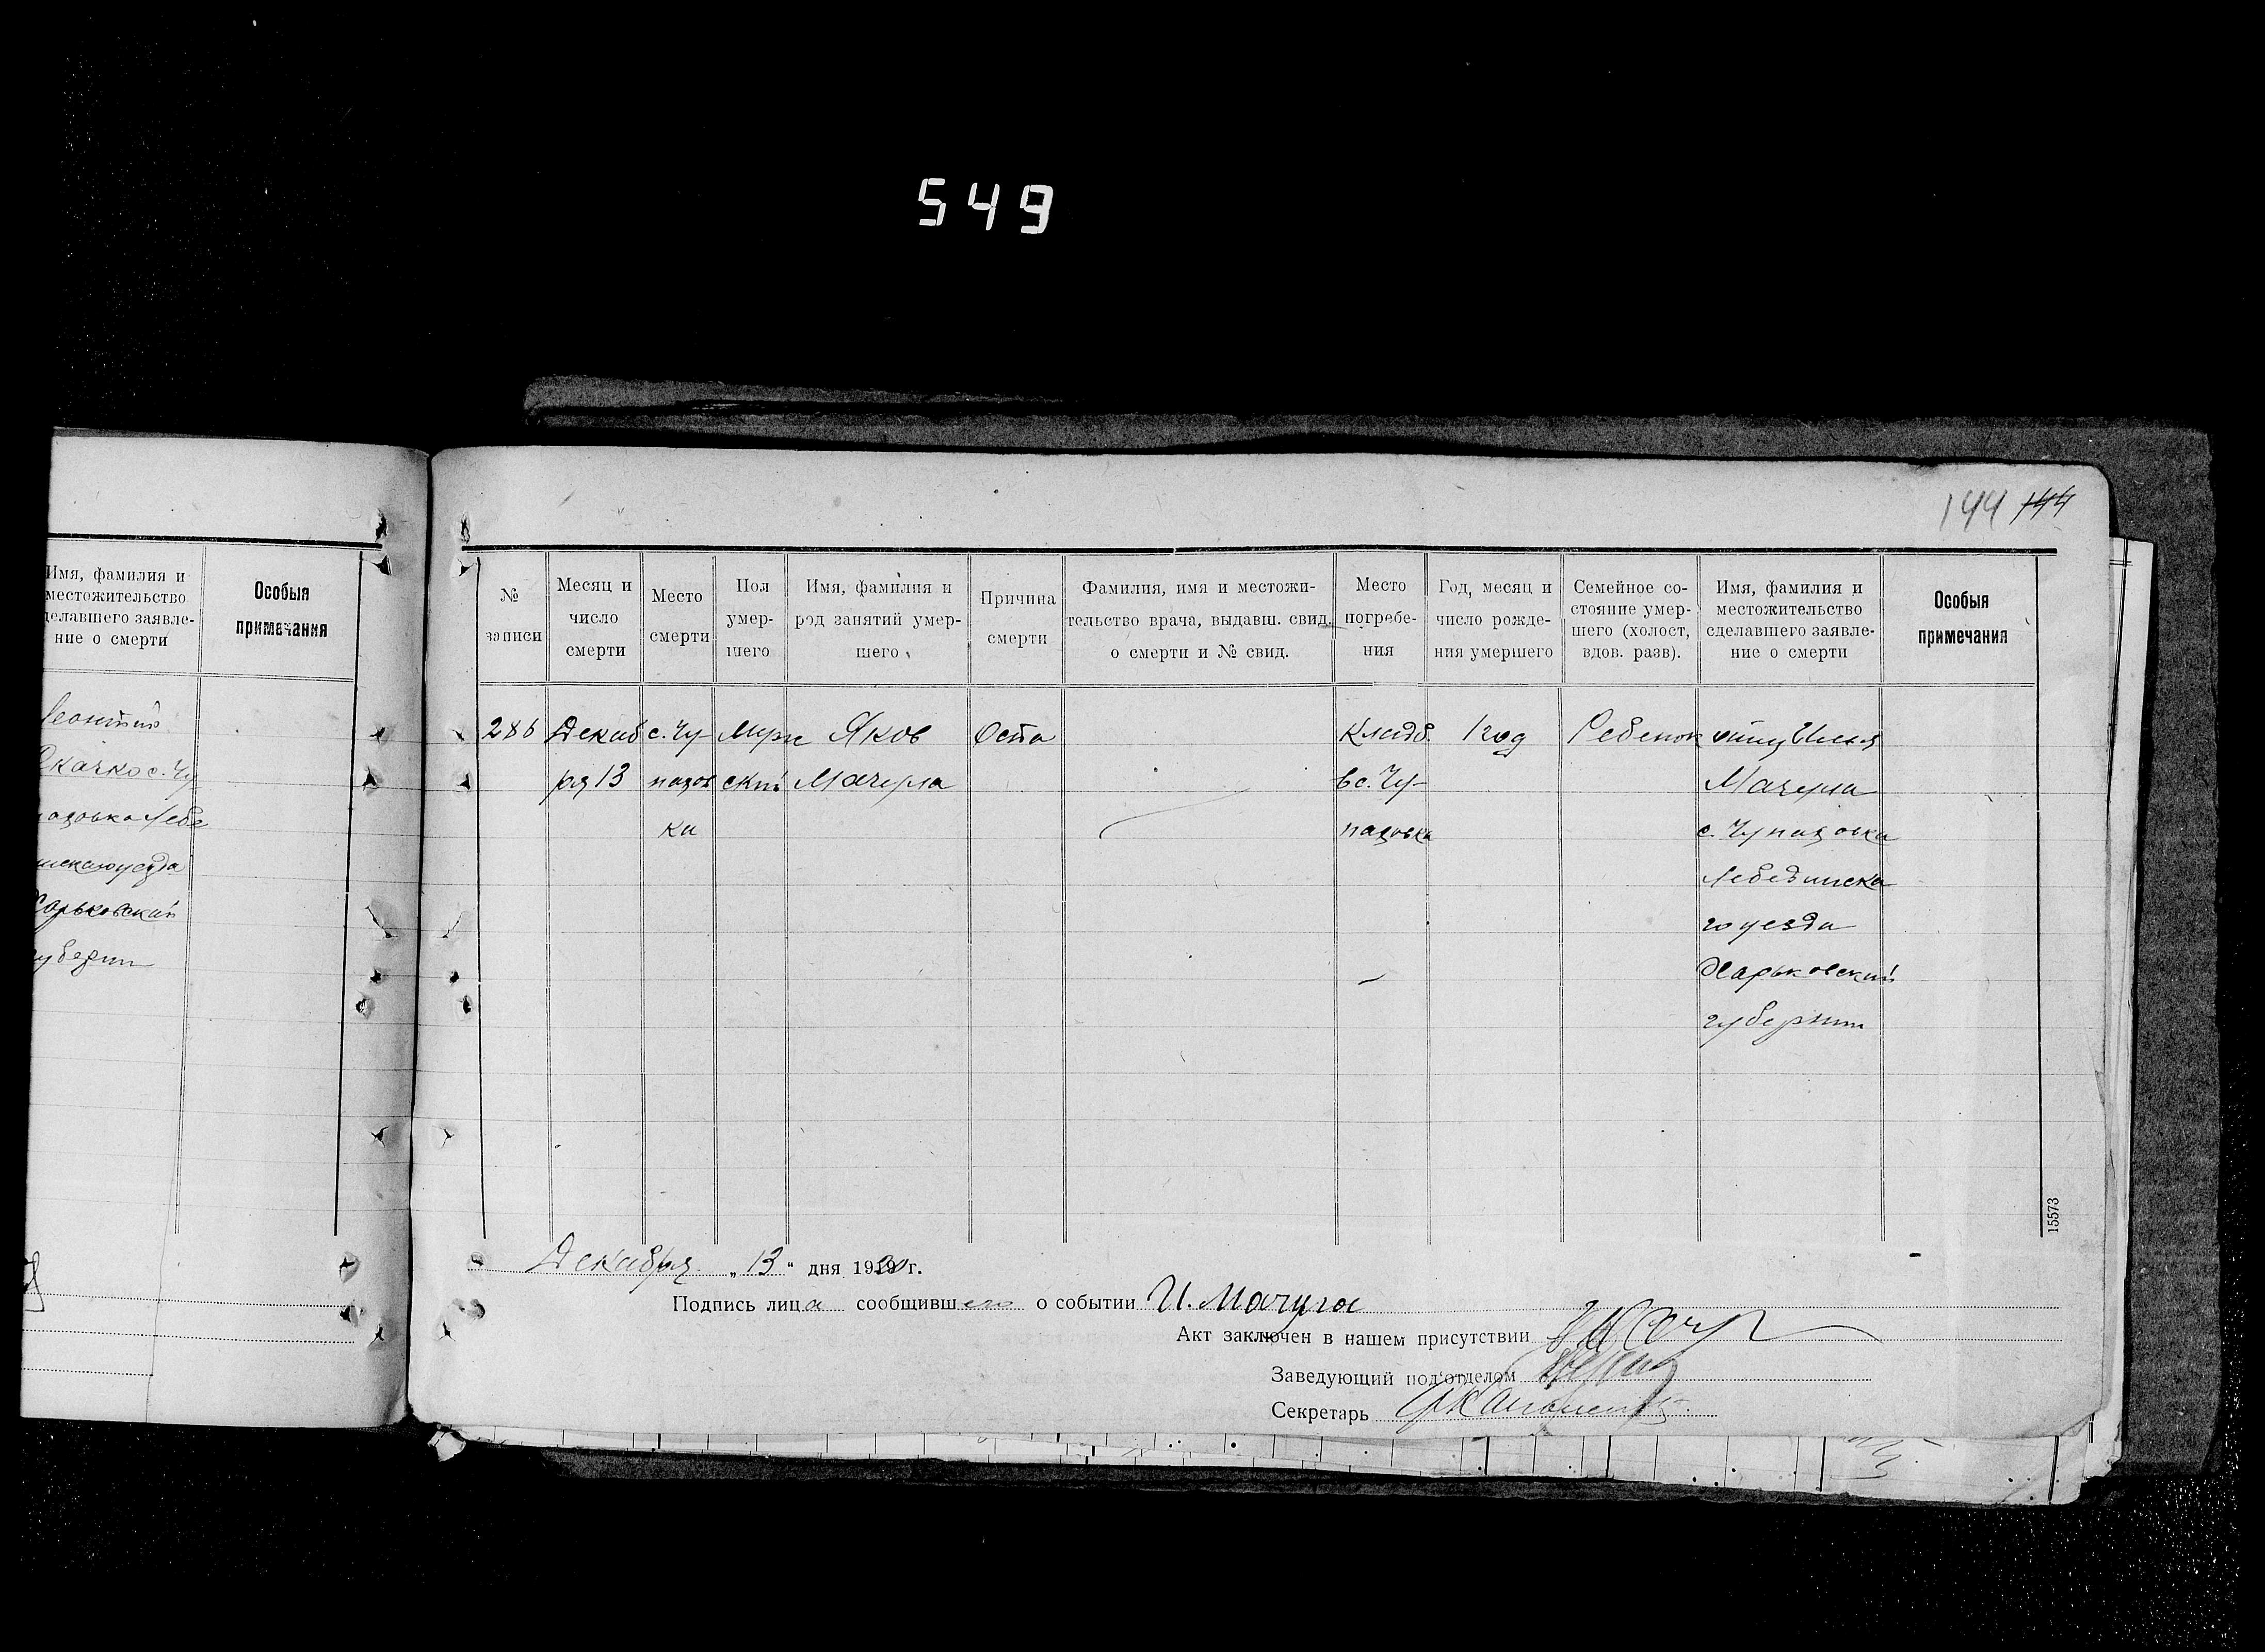 549
144 144
Имя, фамилия и
местожительство
сделавшего заявле-
ние о смерти
Особыя
примечания
Леонтий
Скачко с. Чу
пазовка Лебе
динского уезда
Харьковский
губернии
№
записи
Месяц и
число
смерти
Место
смерти
Пол
умер-
шего
Имя, фамилия и
род занятий умер-
шего
Причина
смерти
Фамилия, имя и местожи-
тельство врача, выдавш. свид.
о смерти и № свид.
Место
погребе-
ния
Год, месяц и
число рожде-
ния умершего
Семейное со-
стояние умер-
шего (холост,
вдов. разв).
Имя, фамилия и
местожительство
сделавшего заявле-
ние о смерти
Особыя
примечания
286
Декаб
ря 13
с. Чу-
пазов
ка
Муж
ский
Яков
Мачула
Оспа
Кладб.
в с. Чу-
пазовка
1 год
Ребенок
отец Илья
Мачула
с. Чупазовка
Лебединска
го уезда
Харьковский
губернии
15573
Декабря „13“ дня 1920 г.
Подпись лица сообщивш его о событии И. Мачула
Акт заключен в нашем присутствии
Заведующий под'отделом
Секретарь